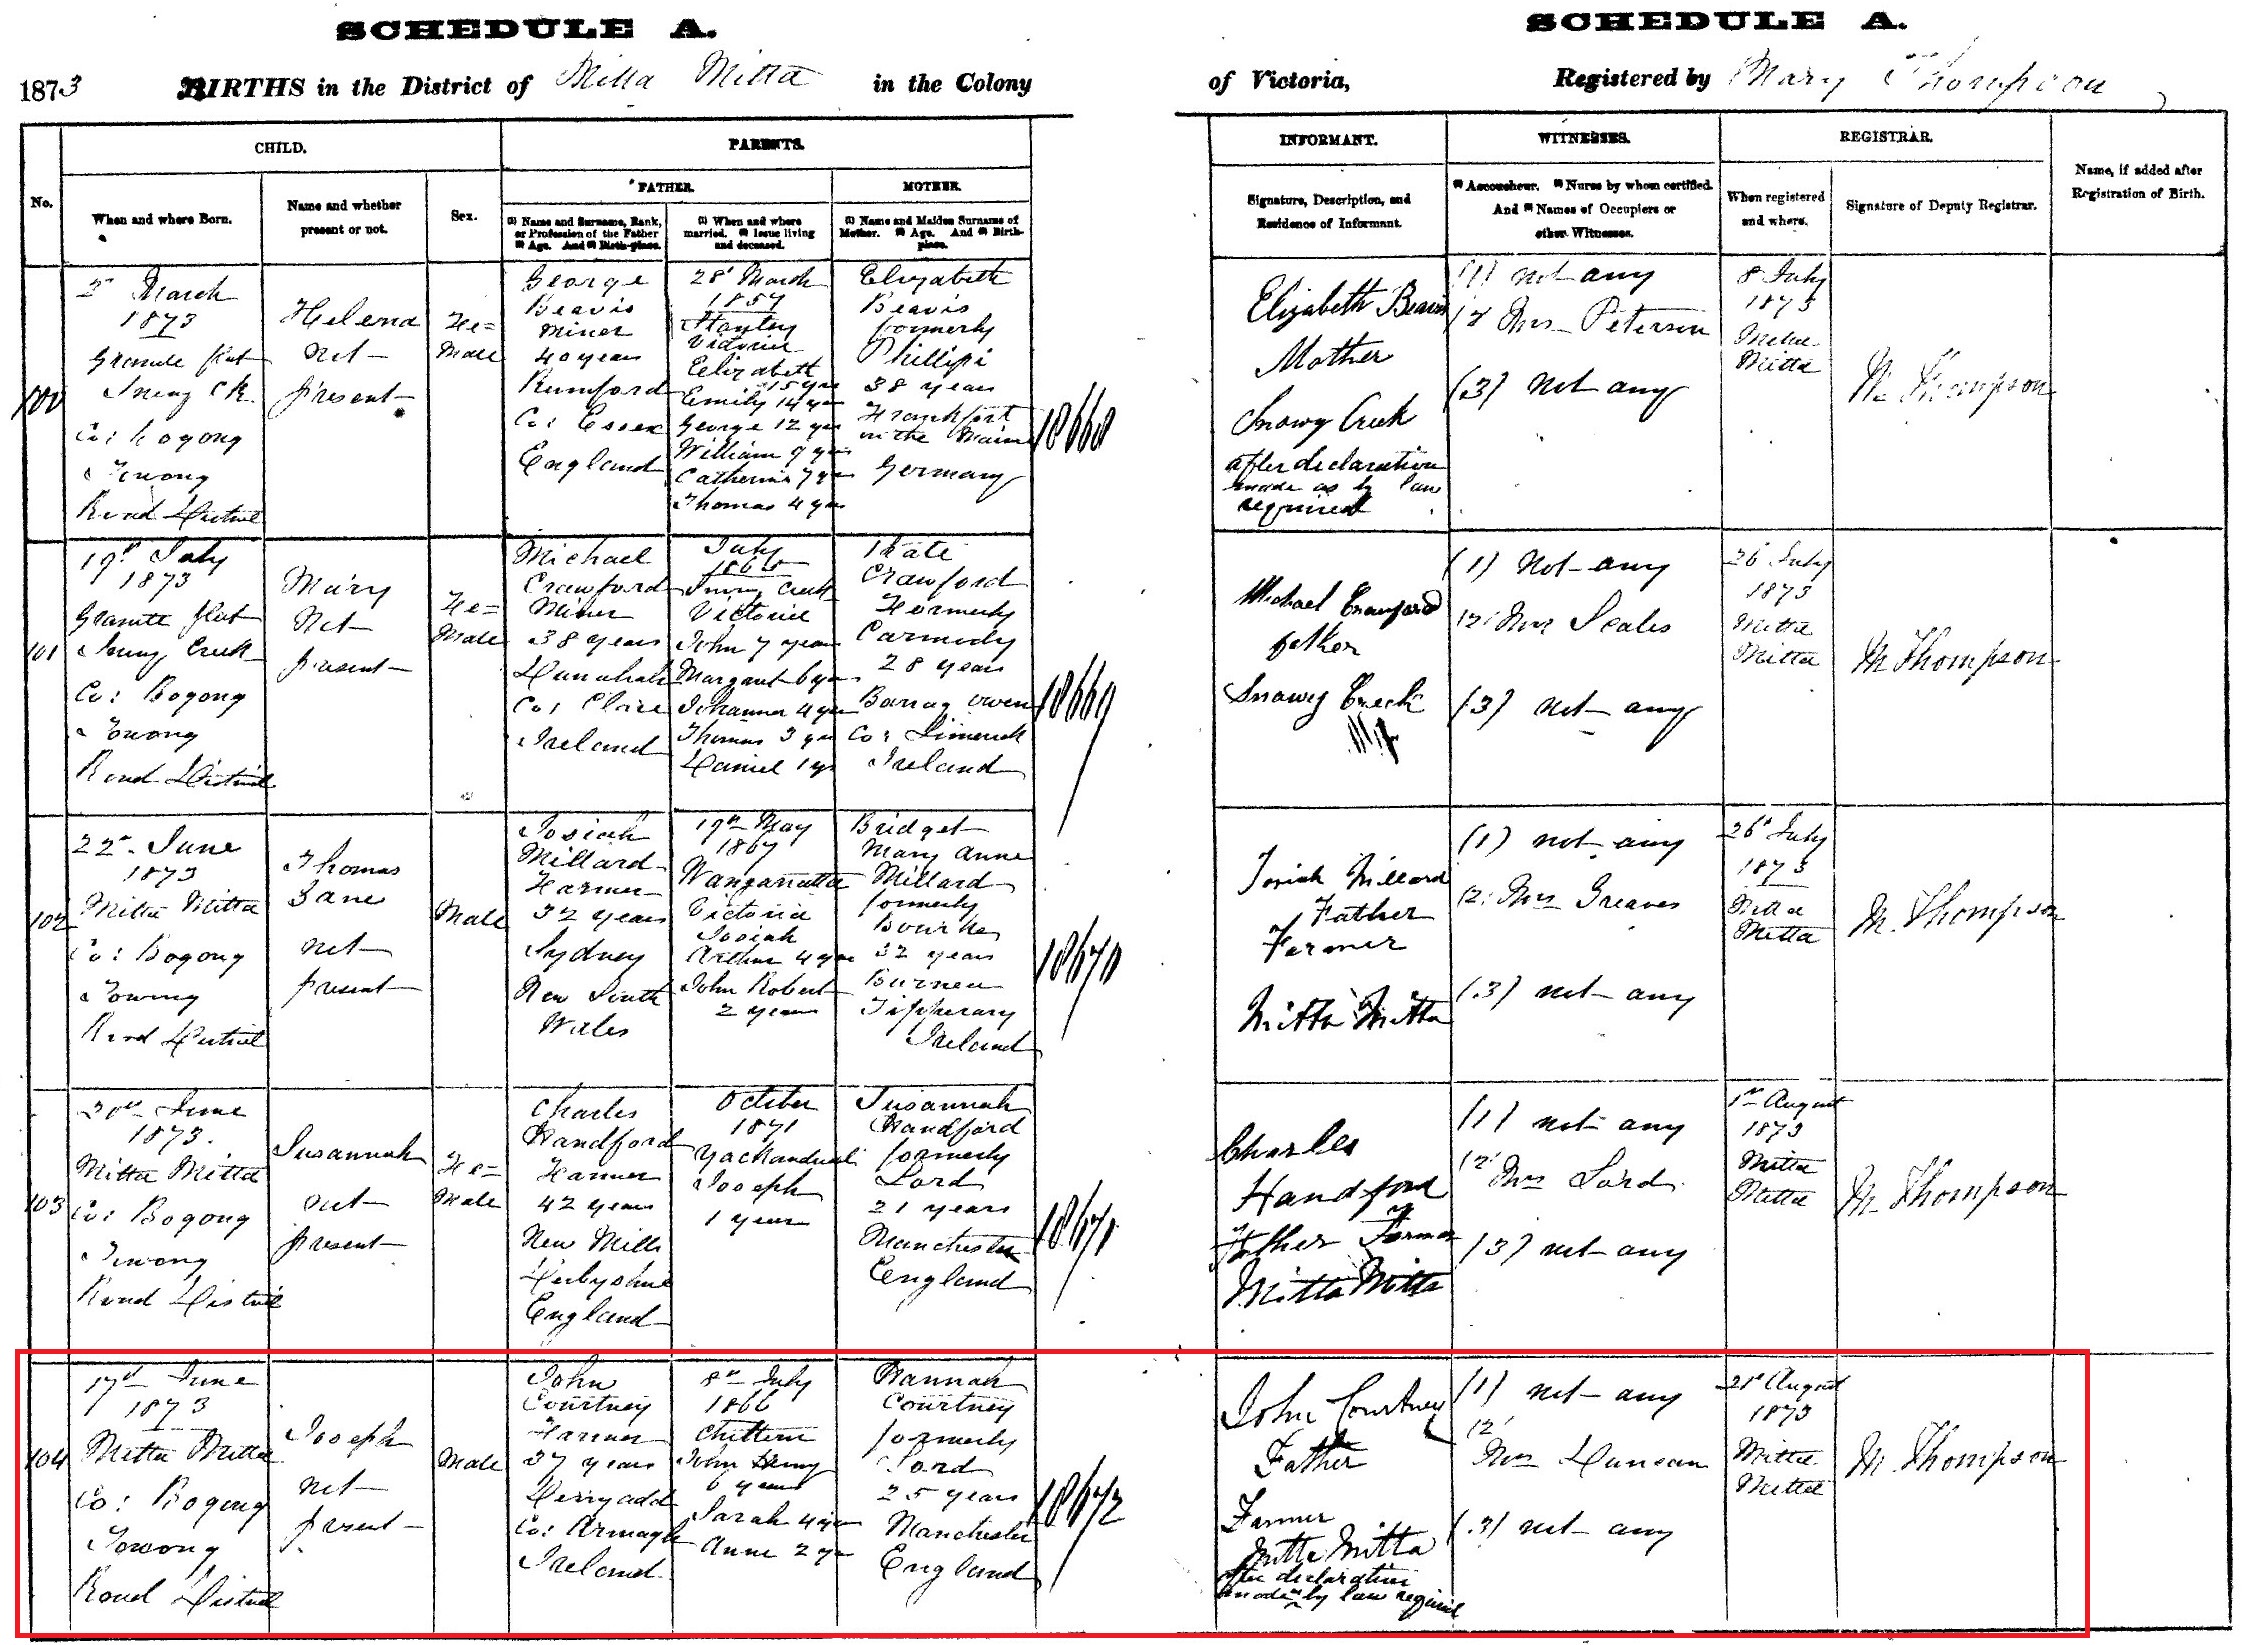 SCHEDULE A.
SCHEDULE A.
1873 BIRTHS in the District of Mitta Mitta in the Colony
of Victoria, Registered by Mary Thompson
No.
CHILD.
When and where Born.
Name and whether
present or not.
Sex.
PARENTS.
FATHER.
(1) Name and Surname, Rank,
or Profession of the Father
(2) Age. And (3) Birth-place.
(1) When and where
married. (2) Issue living
and deceased.
MOTHER.
(1) Name and Maiden Surname of
Mother. (2) Age. And (3) Birth-
place.
INFORMANT.
Signature, Description, and
Residence of Informant.
WITNESSES.
(1) Accoucheur. (2) Nurse by whom certified.
And (3) Names of Occupiers or
other Witnesses.
REGISTRAR.
When registered
and where.
Signature of Deputy Registrar.
Name, if added after
Registration of Birth.
100
March
1873
Granite flat
Snowy Ck.
Co: Bogong
Towong
Road District
Helena
not
present
Fe=
male
George
Beavis
Miner
40 years
Rumford
Co: Essex
England
28 March
1857
Stanley
Victoria
Elizabeth
15 yrs
Emily 14 yrs
George 12 yrs
William 9 yrs
Catherine 7 yrs
Thomas 4 yrs
Elizabeth
Beavis
formerly
Phillipi
38 years
Frankfort
on the Maine
Germany
18668
Elizabeth Beavis
Mother
Snowy Creek
after declaration
made as by law
required
(1) not any
(2) Mrs Peterson
(3) not any
8 July
1873
Mitta
Mitta
M Thompson
101
19th July
1873
Granite flat
Snowy Creek
Co: Bogong
Towong
Road District
Mary
Not
present
Fe=
male
Michael
Crawford
Miner
38 years
Co: Clare
Ireland
July
1866
Snowy Creek
Victoria
John 7 years
Margaret 6 yrs
Johanna 4 yrs
Thomas 3 yrs
Daniel 1 yr
Kate
Crawford
Formerly
Carmody
28 years
Co: Limerick
Ireland
18669
Michael Crawford
father
Snowy Creek
(1) Not any
(2) Mrs Scales
(3) not any
26 July
1873
Mitta
Mitta
M Thompson
102
22nd June
1873
Mitta Mitta
Co: Bogong
Towong
Road District
Thomas
Zane
not
present
Male
Josiah
Millard
Farmer
32 years
Sydney
New South
Wales
19th May
1867
Wangaratta
Victoria
Josiah
Arthur 4 yrs
John Robert
2 years
Bridget
Mary Anne
Millard
formerly
Bourke
32 years
Tipperary
Ireland
18670
Josiah Millard
Father
Farmer
Mitta Mitta
(1) not any
(2) Mrs Greaves
(3) not any
26 July
1873
Mitta
Mitta
M. Thompson
103
30th June
1873.
Mitta Mitta
Co: Bogong
Towong
Road District
Susannah
not
present
Fe=
male
Charles
Handford
Farmer
42 years
New Mills
Derbyshire
England
October
1871
Yackandandah
Joseph
1 year
Susannah
Handford
formerly
Lord
21 years
Manchester
England
18671
Charles
Handford
Father Farmer
Mitta Mitta
(1) not any
(2) Mrs Lord
(3) not any
1st August
1873
Mitta
Mitta
M. Thompson
104
17th June
1873
Mitta Mitta
Co: Bogong
Towong
Road District
Joseph
not
present
Male
John
Courtney
Farmer
37 years
Derryadd
Co: Armagh
Ireland
8th July
1866
Chiltern
John Henry
6 years
Sarah 4 yrs
Anne 2 yrs
Hannah
Courtney
formerly
Lord
25 years
Manchester
England
18672
John Courtney
Father
Farmer
Mitta Mitta
after declaration
made as by law required
(1) not any
(2)
Mrs Duncan
(3) not any
21st August
1873
Mitta
Mitta
M. Thompson